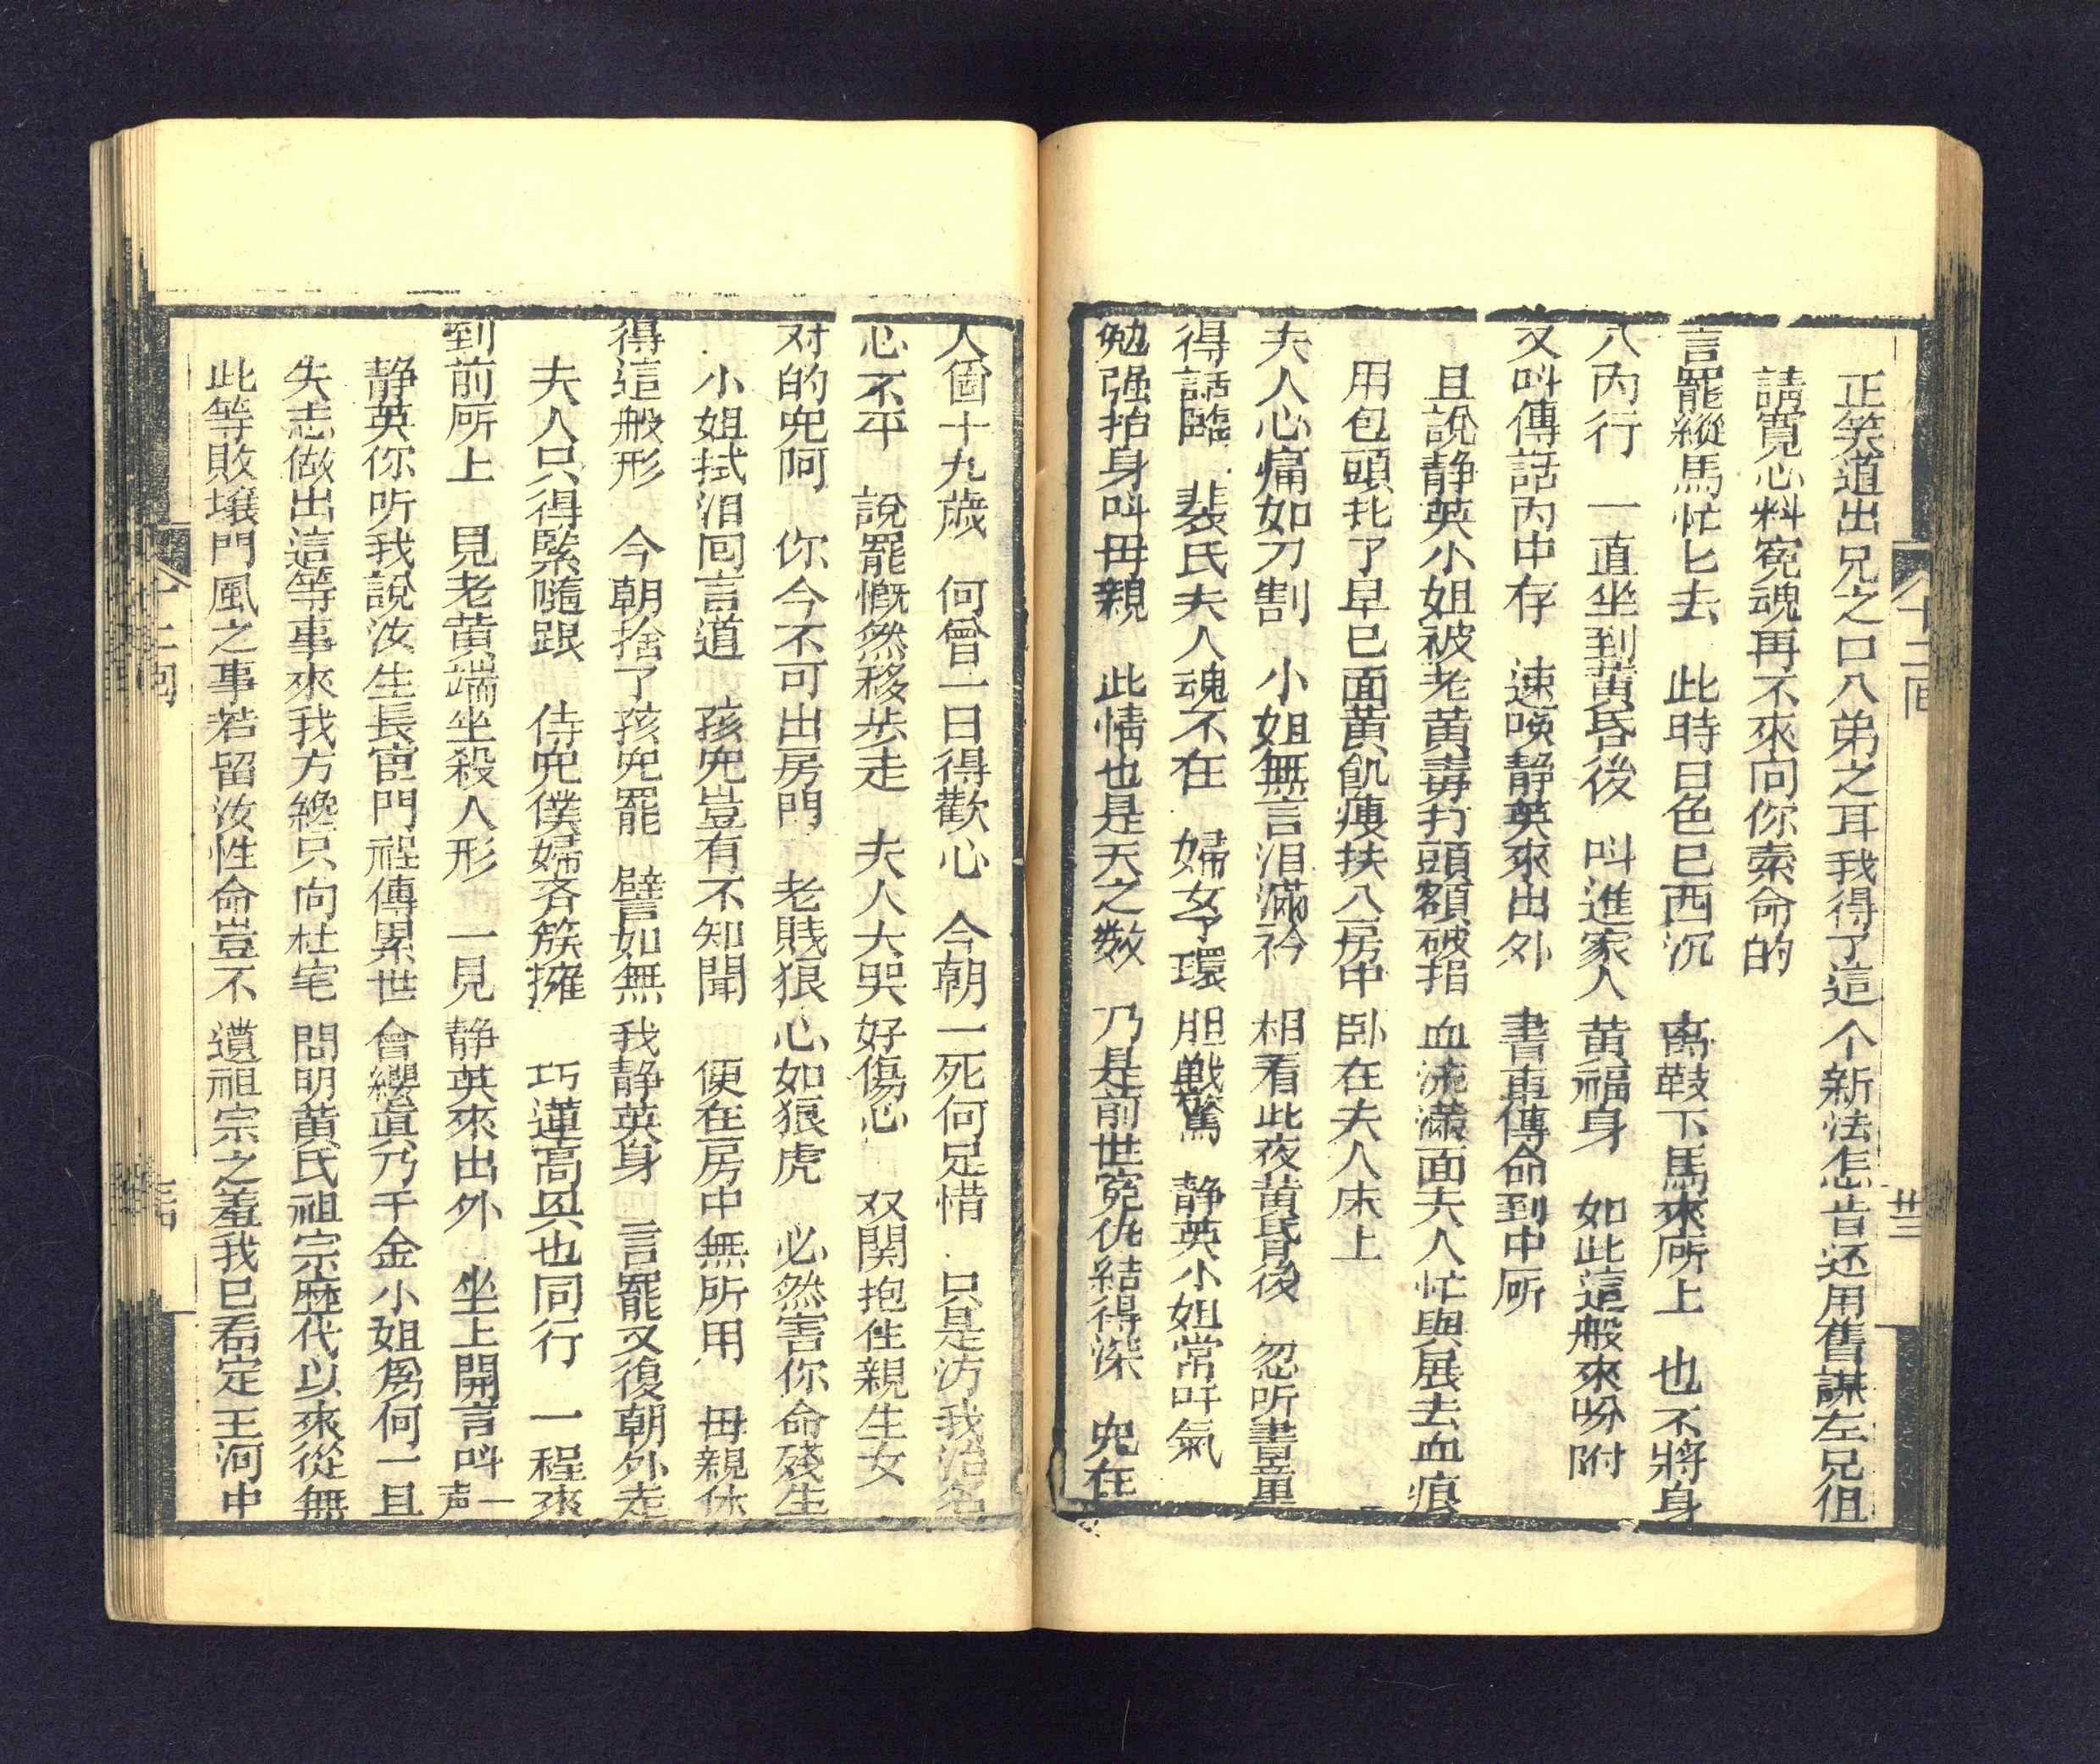 十二回
廿三
正笑道出兄之口入弟之耳我得了這个新法怎肯还用舊謀左兄但
請寬心料寃魂再不來向你索命的
言罷縱馬忙匕去　此時日色已西沉　离鞍下馬來所上　也不將身
入內行　一直坐到黄昏後　叫進家人黄福身　如此這般來吩咐
又叫傳話內中存　速喚静英來出外　書童傳命到中所
且說静英小姐被老黄毒打頭額破損血流滿面夫人忙與展去血痕
用包頭扎了早已面黄飢瘦扶入房中臥在夫人床上
夫人心痛如刀割　小姐無言泪滿衿　相看此夜黄昏後　忽听書童
得話臨　裴氏夫人魂不在　婦女了環胆戰驚　静英小姐常吁氣
勉强抬身叫母親　此情也是天之数　乃是前世寃仇結得深　児在
人間十九歲　何曾一日得歡心　今朝一死何足惜　只是污我洁名
心不平　說罷慨然移步走　夫人大哭好傷心　双関抱住親生女
对的児呵　你今不可出房門　老賎狼心如狼虎　必然害你命殘生
小姐拭泪回言道　孩児豈有不知聞　便在房中無所用　母親休
得這般形　今朝捨了孩児罷　譬如無我静英身　言罷又復朝外走
夫人只得緊隨跟　侍児僕婦齐簇擁　巧蓮高㒷也同行　一程來
到前所上　見老黄端坐殺人形　一見静英來出外　坐上開言叫一声
静英你听我說汝生長宦門裎傳累世會纓眞乃千金小姐爲何一旦
失志做出這等事來我方纔只向杜宅問明黄氏祖宗歷代以來從無
此等敗壞門風之事若留汝性命豈不遺祖宗之羞我已看定王河中
十二回